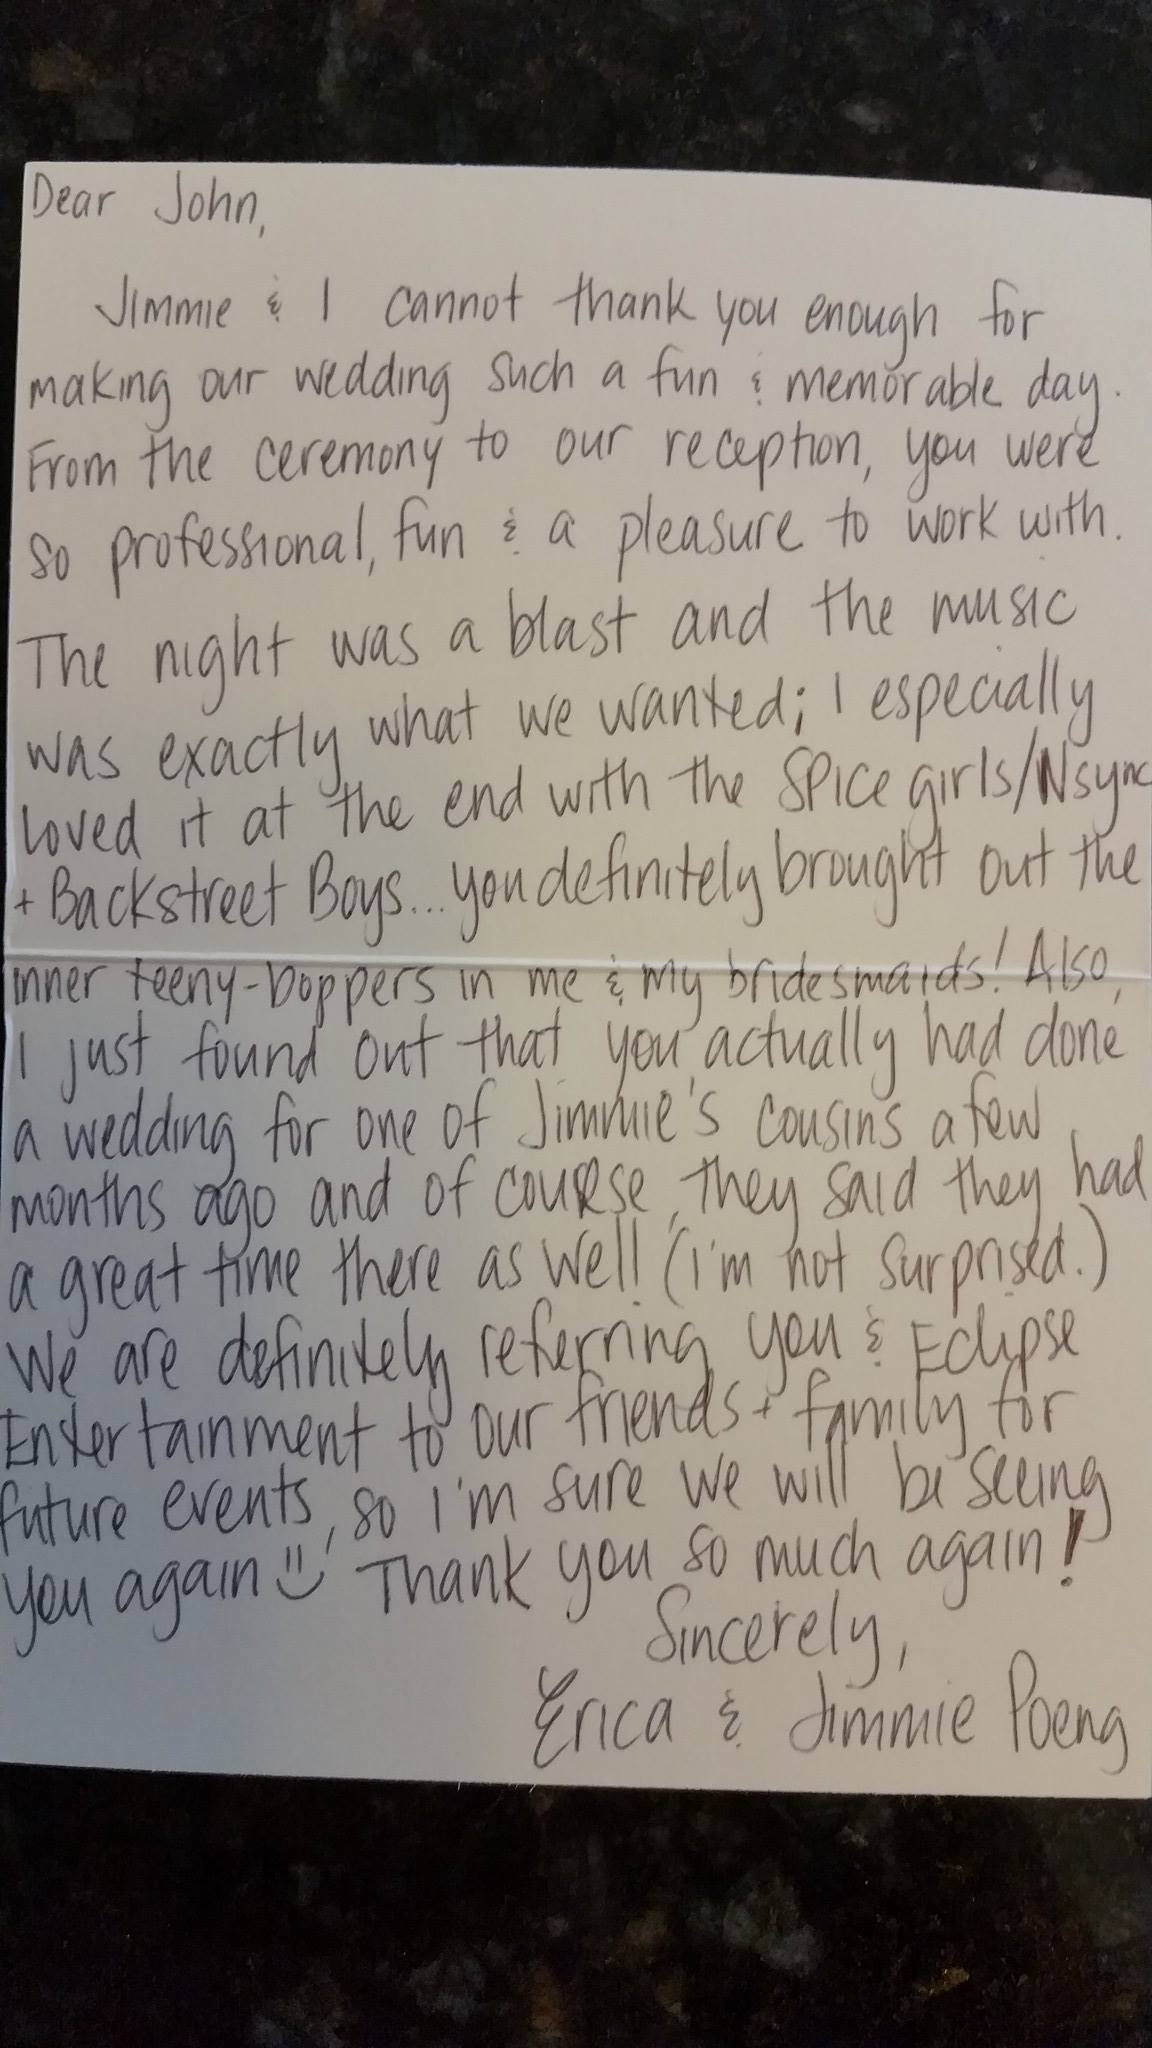 Dear John,
Jimmie & I cannot thank you enough for
making our wedding such a fun & memorable day.
From the ceremony to our reception, you were
so professional, fun & a pleasure to work with.
The night was a blast and the music
was exactly what we wanted; I especially
loved it at the end with the Spice girls/Nsync
+ Backstreet Boys... you definitely brought out the
inner teeny-boppers in me & my bridesmaids! Also,
I just found out that you actually had done
a wedding for one of Jimmie's cousins a few
months ago and of course, they said they had
a great time there as well! (I'm not surprised.)
We are definitely referring you & Eclipse
Entertainment to our friends + family for
future events, so I'm sure we will be seeing
you again :) Thank you so much again!
Sincerely,
Erica & Jimmie Poeng